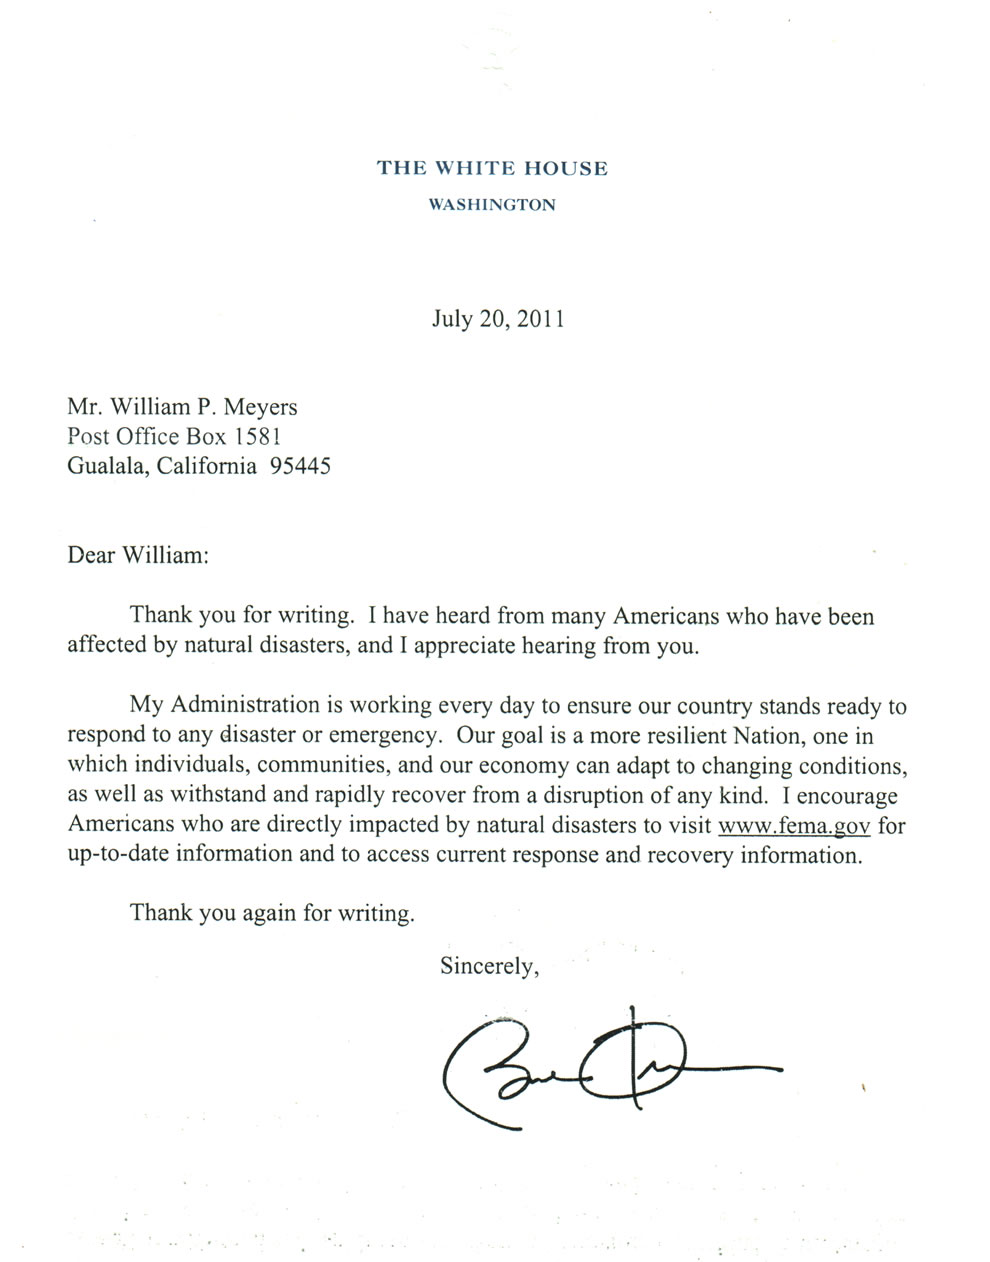 THE WHITE HOUSE
WASHINGTON
July 20, 2011
Mr. William P. Meyers
Post Office Box 1581
Gualala, California  95445
Dear William:
Thank you for writing.  I have heard from many Americans who have been
affected by natural disasters, and I appreciate hearing from you.
My Administration is working every day to ensure our country stands ready to
respond to any disaster or emergency.  Our goal is a more resilient Nation, one in
which individuals, communities, and our economy can adapt to changing conditions,
as well as withstand and rapidly recover from a disruption of any kind.  I encourage
Americans who are directly impacted by natural disasters to visit www.fema.gov for
up-to-date information and to access current response and recovery information.
Thank you again for writing.
Sincerely,